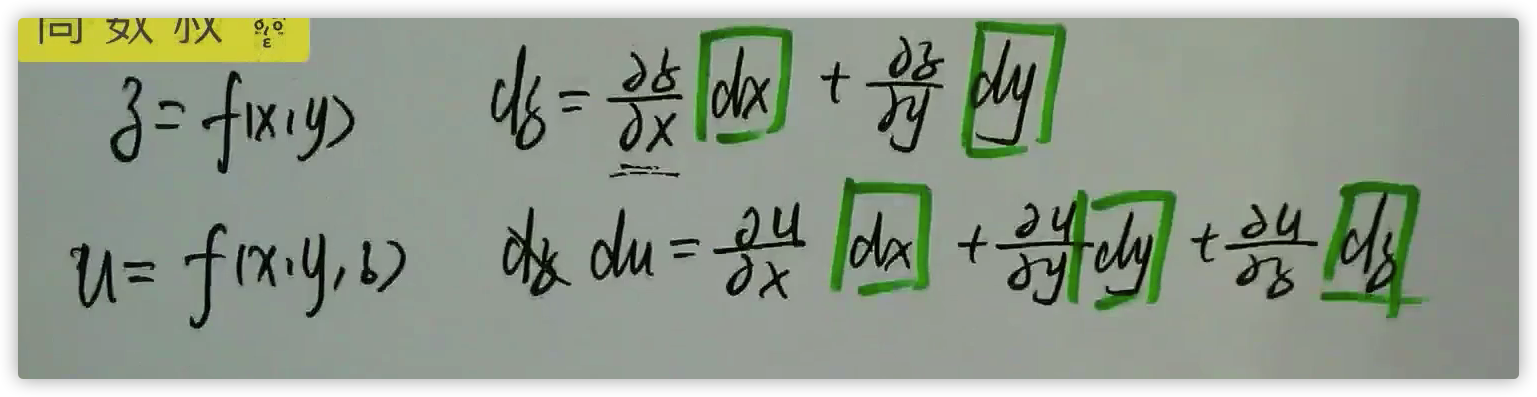 高数叔
z = f(x,y) dz = ∂z/∂x dx + ∂z/∂y dy
u = f(x,y,z) dz du = ∂u/∂x dx + ∂u/∂y dy + ∂u/∂z dz